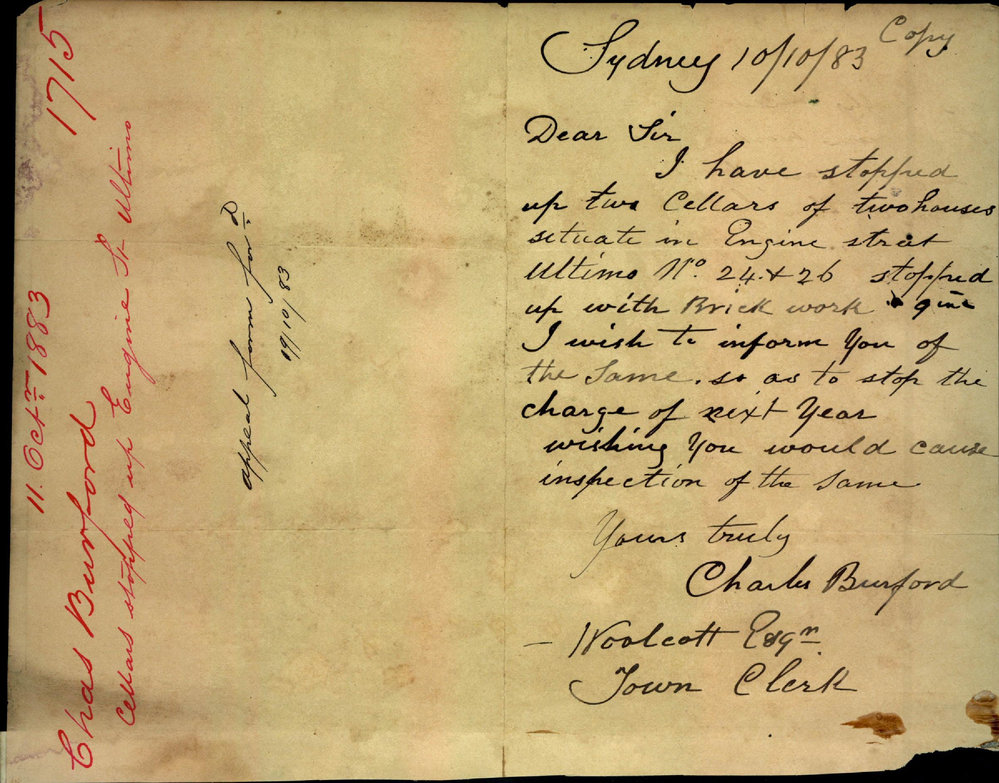 1715
11. Octr 1883
Chas Burford
Cellars stopped up Engine St Ultimo
appeal form for d
19/10/83
Copy
Sydney 10/10/83
Dear Sir
I have stopped
up two Cellars of two houses
situate in Engine street
Ultimo No. 24 & 26 stopped
up with Brick work
I wish to inform You of
the Same. so as to stop the
charge of nixt Year
wishing You would cause
inspection of the same
Yours truly
Charles Burford
— Woolcott Esqr
Town Clerk